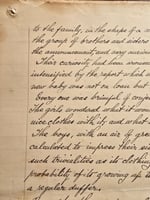 to the family, in the shape of a
the group of brothers and sisters
the announcement, and very
Their curiosity had been aroused
intensified by the report which
new baby was not on loan but
Every one was brimful of
The girls wondered what it would
nice clothes with it; and what
The boys, with an air of great
calculated to impress their sis
such trivialities as its clothing
probability of its growing up to
a regular duffer.